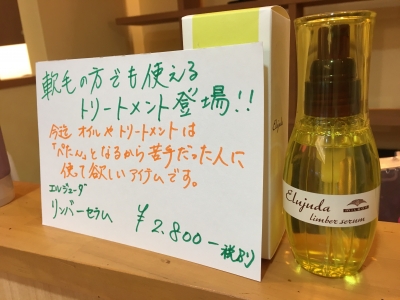 軟毛の方でも使える
トリートメント登場!!
今迄オイルやトリートメントは
"ぺたん"となるから苦手だった人に
使って欲しいアイテムです。
エルジューダ
リンバーセラム ¥2.800-税別
Elujuda
Elujuda
MILBON
limber serum